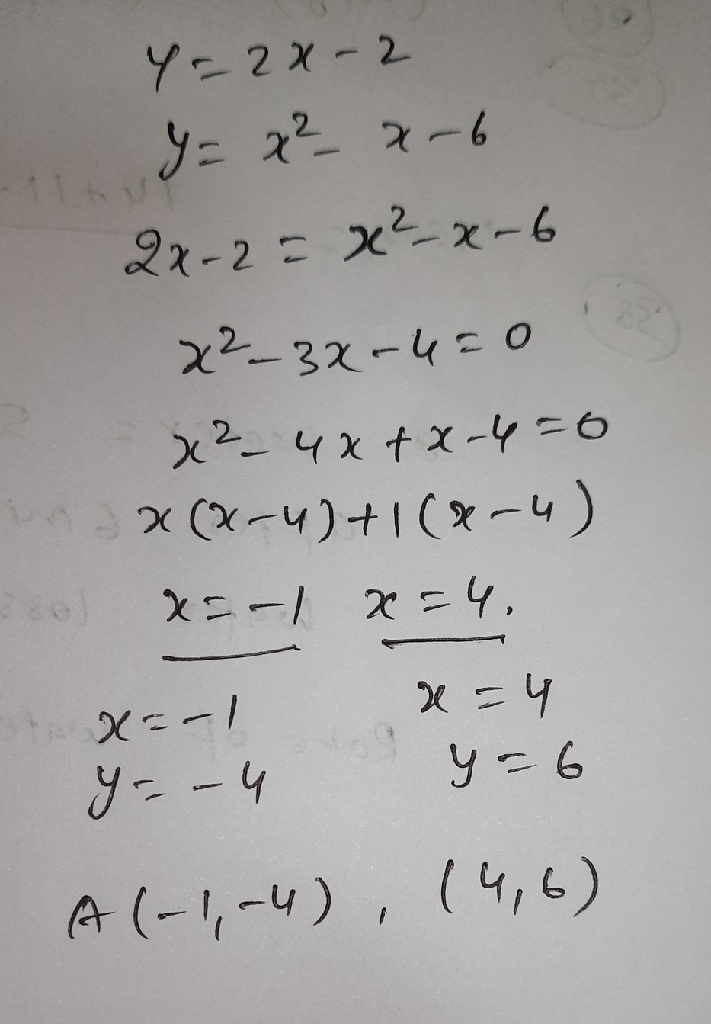 y = 2x - 2
y = x² - x - 6
2x - 2 = x² - x - 6
x² - 3x - 4 = 0
x² - 4x + x - 4 = 0
x(x-4)+1(x-4)
x = -1 x = 4.
x = -1 x = 4
y = -4 y = 6
A(-1,-4), (4,6)